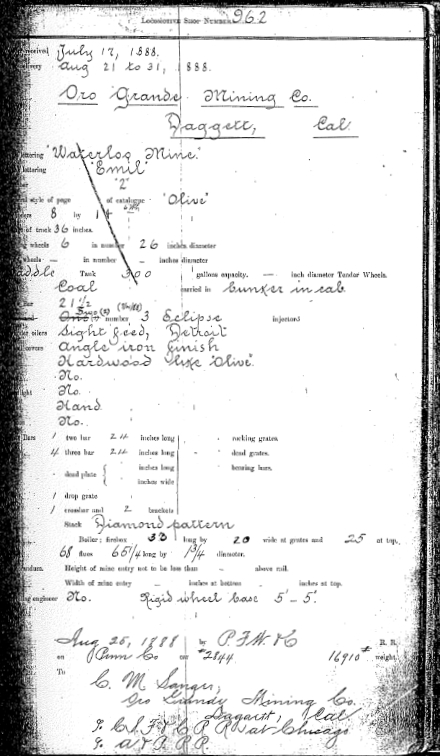 Locomotive Shop Number 962
received July 17, 1888.
livery Aug 21 to 31, 1888.
Oro Grande Mining Co.
Daggett, Cal.
lettering "Waterloo Mine."
lettering "Emil"
"2"
style of page of catalogue "Olive"
8 by 14
of truck 36 inches.
wheels 6 in number 26 inches diameter
wheels - in number - inches diameter
addle Tank 300 gallons capacity. — inch diameter Tender Wheels.
Coal carried in bunker in cab
21 1/2
Two (2) number 3 Eclipse injectors
oilers Sight feed, Detroit
covers Angle iron finish
Hardwood like "Olive".
No.
light No.
Hand
No.
Bars 1 two bar 24 inches long - rocking grates.
4 three bar 24 inches long - dead grates.
- dead plate { inches long bearing bars.
inches wide
1 drop grate
1 crossbar and 2 brackets
Stack Diamond pattern
Boiler; firebox 33 long by 20 wide at grates and 25 at top,
68 flues 65 1/4 long by 1 3/4 diameter.
Height of mine entry not to be less than - above rail.
Width of mine entry - inches at bottom - inches at top.
engineer No. Rigid wheel base 5' - 5".
Aug 25, 1888 by P. F. W. & C R. R.
on Penn Co car #2844 16910# weight.
To
C. M. Sanger,
Oro Grande Mining Co.
Daggett, Cal
at Chicago